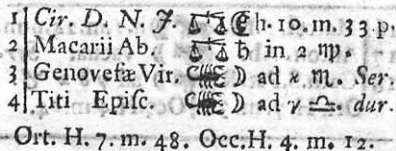 1 Cir. D. N. J. ♎ ☾ h. 10. m. 33 p.
2 Macarii Ab. ♎ ♄ in 2 ♍.
3 Genovefæ Vir. ☽ ad ϰ ♏. Ser.
4 Titi Episc. ☽ ad γ ♎. dur.
Ort. H. 7. m. 48. Occ. H. 4. m. 12.